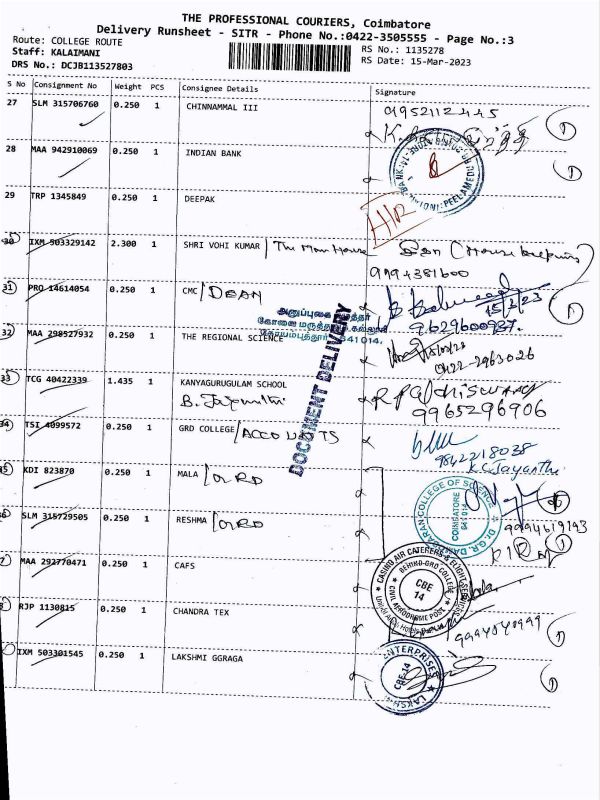 THE PROFESSIONAL COURIERS, Coimbatore
Delivery Runsheet - SITR - Phone No.:0422-3505555 - Page No.:3
Route: COLLEGE ROUTE
RS No.: 1135278
Staff: KALAIMANI
RS Date: 15-Mar-2023
DRS No.: DCJB113527803
S No Consignment No Weight PCS Consignee Details Signature
27 SLM 315706760 0.250 1 CHINNAMMAL III 9952112445
28 MAA 942910069 0.250 1 INDIAN BANK
29 TRP 1345849 0.250 1 DEEPAK
30 IXM 503329142 2.300 1 SHRI VOHI KUMAR
9994381600
31 PRO 14614054 0.250 1 CMC /DEAN
15/3/23
9629600937
அனுப்புகை
32 MAA 298527932 0.250 1 THE REGIONAL SCIENCE
641014.
0422-2963026
DOCUMENT DELIVERY
33 TCG 40422339 1.435 1 KANYAGURUGULAM SCHOOL
9965296906
34 TSI 4099572 0.250 1 GRD COLLEGE /ACCOUNTS
9842218038
K.C.Jayanthi
35 KDI 823870 0.250 1 MALA /GRD
COLLEGE OF SCIENCE
COIMBATORE
641 014
9994619193
SLM 315729505 0.250 1 RESHMA /GRD
MAA 292770471 0.250 1 CAFS
CASINO AIR CATERERS & FLIGHT SERVICES
BEHIND GRD COLLEGE
CIVIL AERODROME POST
CBE
14
RJP 1130815 0.250 1 CHANDRA TEX
IXM 503301545 0.250 1 LAKSHMI GGRAGA
ENTERPRISES
CBE-14